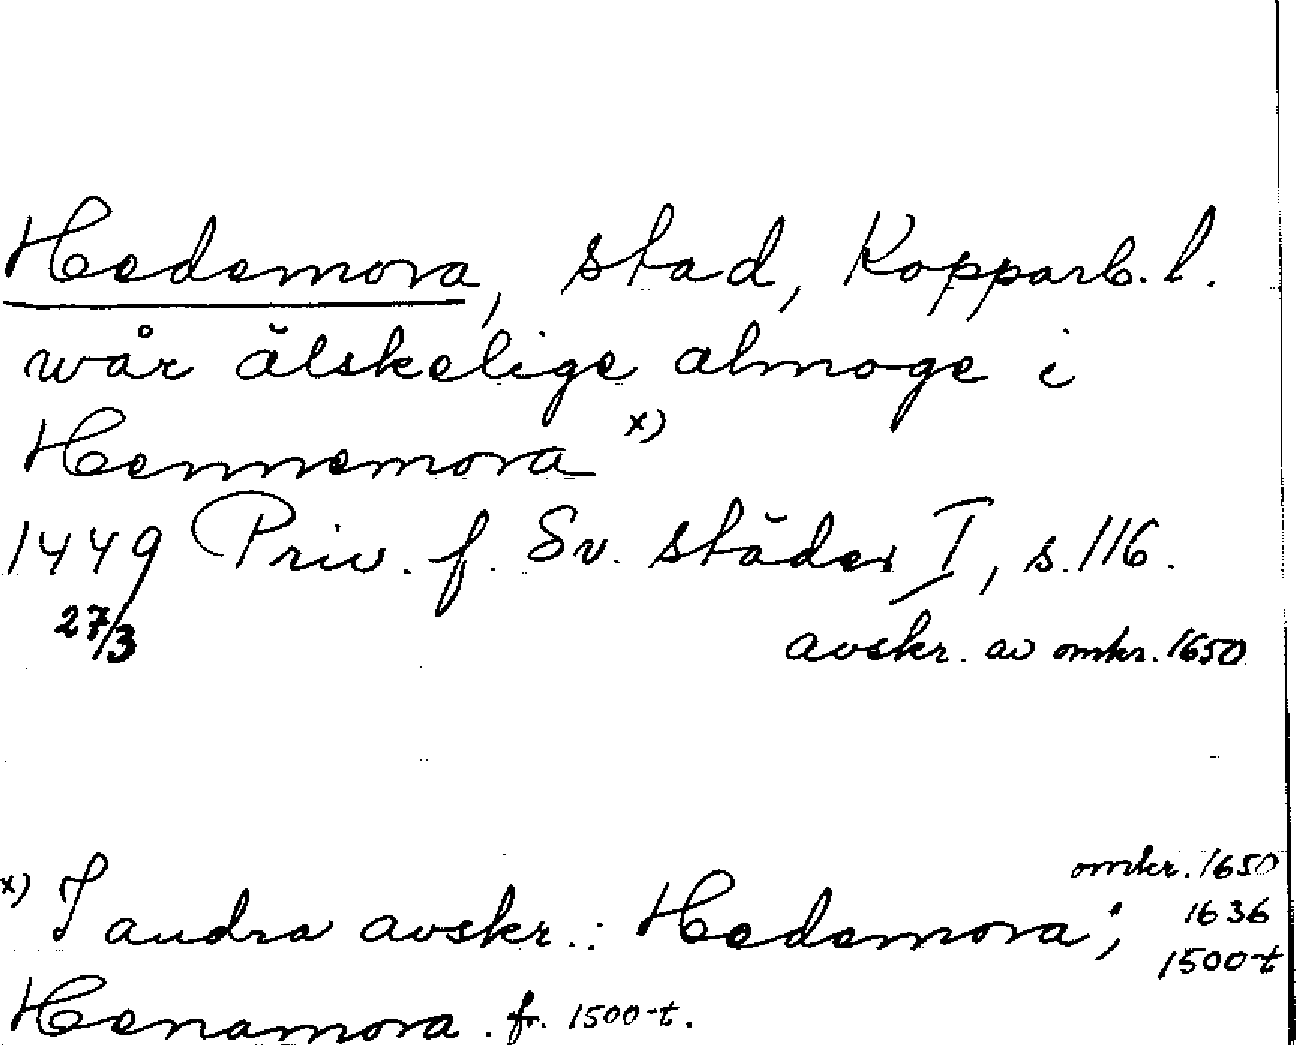 Hedemora, stad, Kopparb. l.
wår älskelige almoge i
Hennemora x)
1449 Priv. f. Sv. städer I, s. 116.
27/3 avskr. av omkr. 1650
x) I andra avskr.: Hedemora; omkr. 1650
1636
1500-t
Henamora. fr. 1500-t.